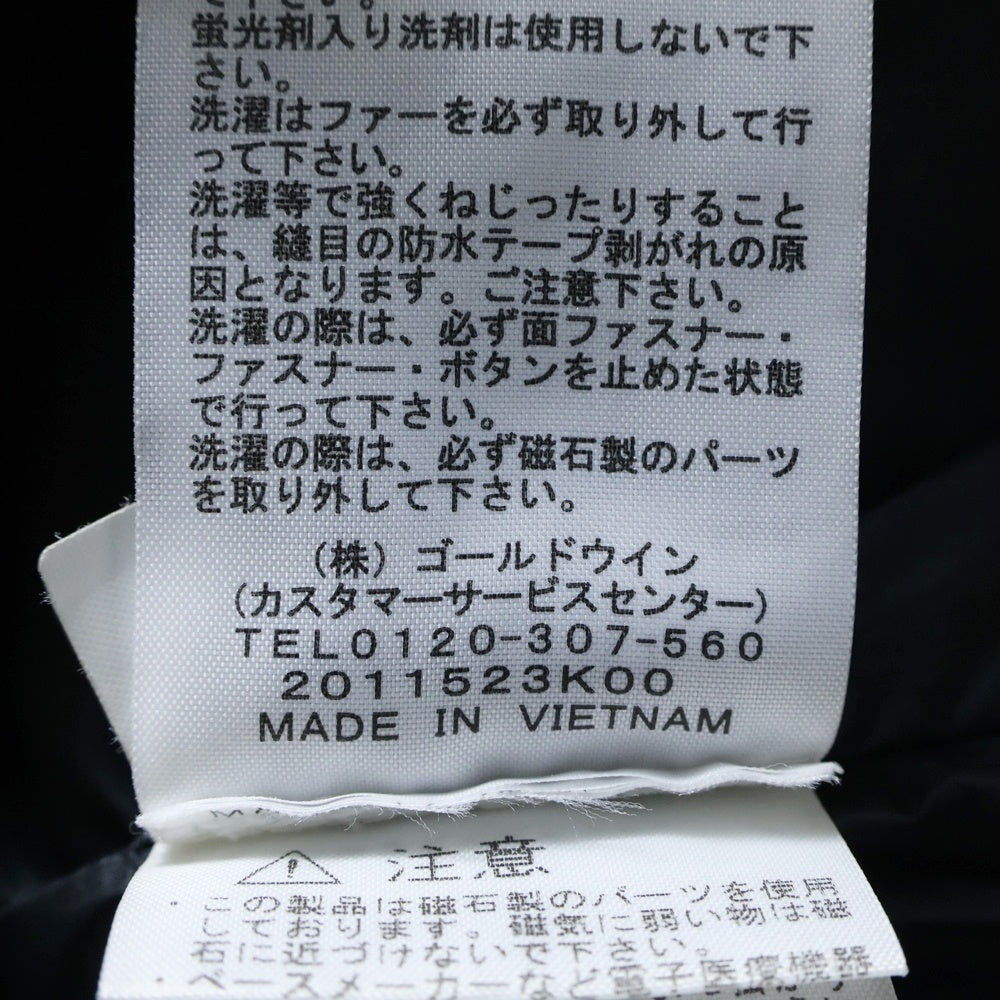 て下さい。
蛍光剤入り洗剤は使用しないで下
さい。
洗濯はファーを必ず取り外して行
って下さい。
洗濯等で強くねじったりすること
は、縫目の防水テープ剥がれの原
因となります。ご注意下さい。
洗濯の際は、必ず面ファスナー・
ファスナー・ボタンを止めた状態
で行って下さい。
洗濯の際は、必ず磁石製のパーツ
を取り外して下さい。
(株) ゴールドウイン
(カスタマーサービスセンター)
TEL0120-307-560
2011523K00
MADE IN VIETNAM
注意
・この製品は磁石製のパーツを使用
しております。磁気に弱い物は磁
石に近づけないで下さい。
・ペースメーカーなど電子医療機器